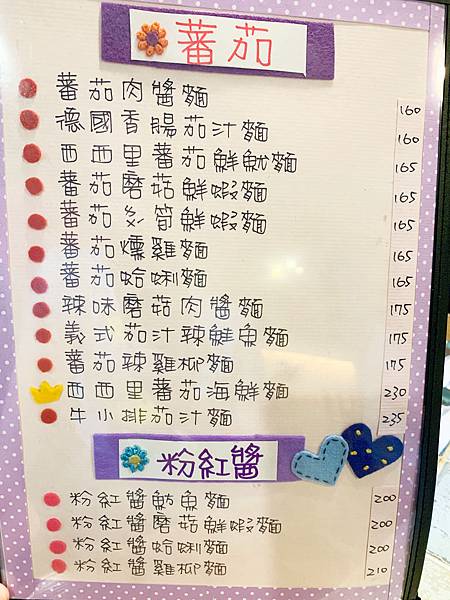 蕃茄
蕃茄肉醬麵 160
德國香腸茄汁麵 160
西西里蕃茄鮮魷麵 165
蕃茄磨菇鮮蝦麵 165
蕃茄筍鮮蝦麵 165
蕃茄燻雞麵 165
蕃茄蛤蜊麵 165
辣味磨菇肉醬麵 175
義式茄汁辣鮭魚麵 175
蕃茄辣雞柳麵 175
西西里蕃茄海鮮麵 230
牛小排茄汁麵 235
粉紅醬
粉紅醬魴魚麵 200
粉紅醬磨菇鮮蝦麵 200
粉紅醬蛤蜊麵 200
粉紅醬雞柳麵 210